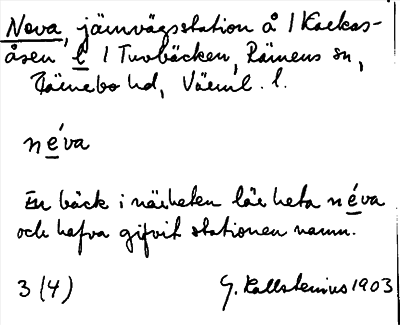 Neva, järnvägsstation å 1 Kackas-
åsen l̲ 1 Tvobäcken, Rämens sn,
Färnebo hd, Värml. l.
néva
En bäck i närheten lär heta néva
och hafva gifvit stationen namn.
3 (4) G. Kallstenius 1903